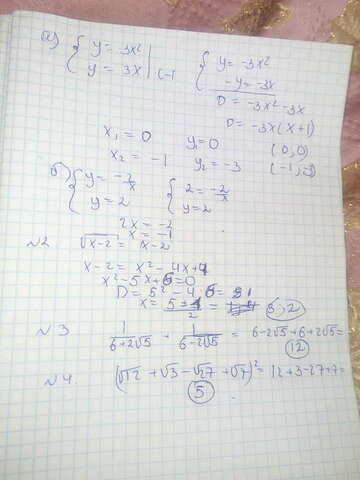 а) { y = -3x² { y = -3x²
y = 3x | (-1 -y = -3x
0 = -3x² - 3x
0 = -3x(x+1)
x₁ = 0 y₁ = 0 (0,0)
x₂ = -1 y₂ = -3 (-1,-3)
б) { y = -2/x { 2 = -2/x
y = 2 y = 2
2x = -2
x = -1
№2 √x-2 = x-2
x-2 = x² - 4x + 4
x² - 5x + 6 = 0
D = 5² - 4·6 =
x = 5±1/2 = 3; 2
№3 1/6+2√5 + 1/6-2√5 = 6-2√5+6+2√5 =
12
№4. (√12 + √3 - √27 + √7)² = 12+3-27+7=
5